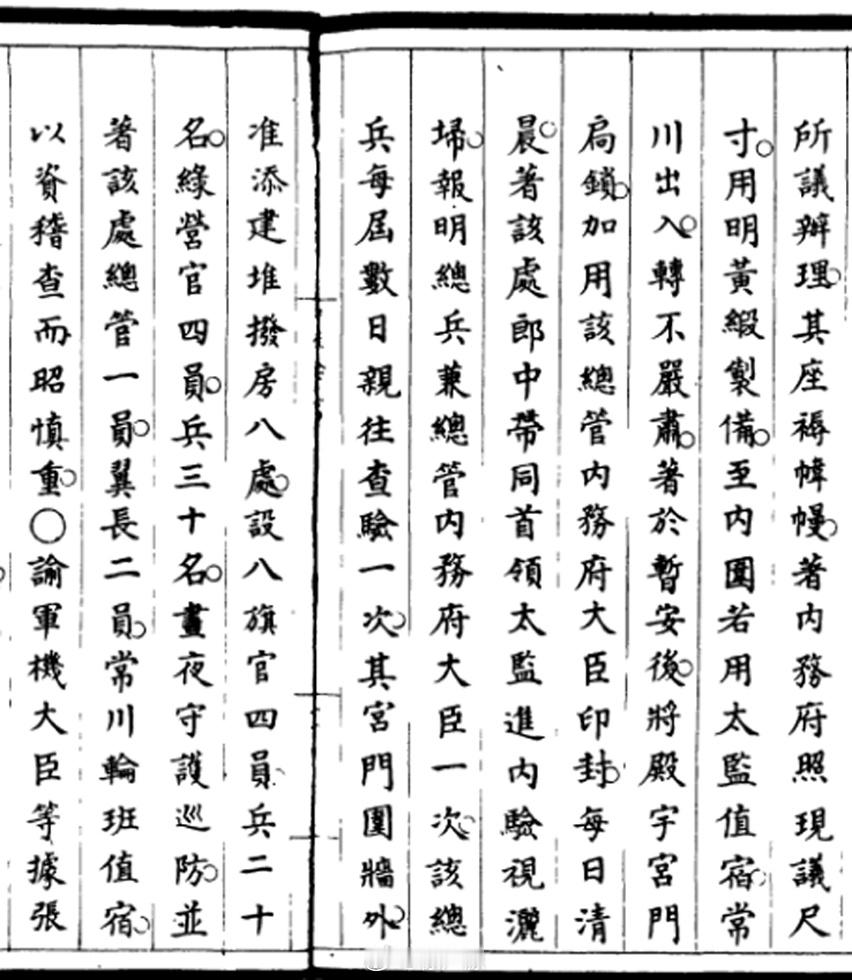 所議辦理。其座褥幃幔。著内務府照現議尺
寸。用明黃緞製備。至内圍若用太監值宿。常
川出入。轉不嚴肅。著於暫安後。將殿宇宮門
扃鎖。加用該總管内務府大臣印封。每日清
晨。著該處郎中帶同首領太監進内驗視灑
埽。報明總兵兼總管内務府大臣一次。該總
兵每屆數日親往查驗一次。其宮門圍牆外。
准添建堆撥房八處。設八旗官四員。兵二十
名。綠營官四員。兵三十名。晝夜守護巡防。並
著該處總管一員。翼長二員。常川輪班值宿。
以資稽查而昭慎重。○諭軍機大臣等據張